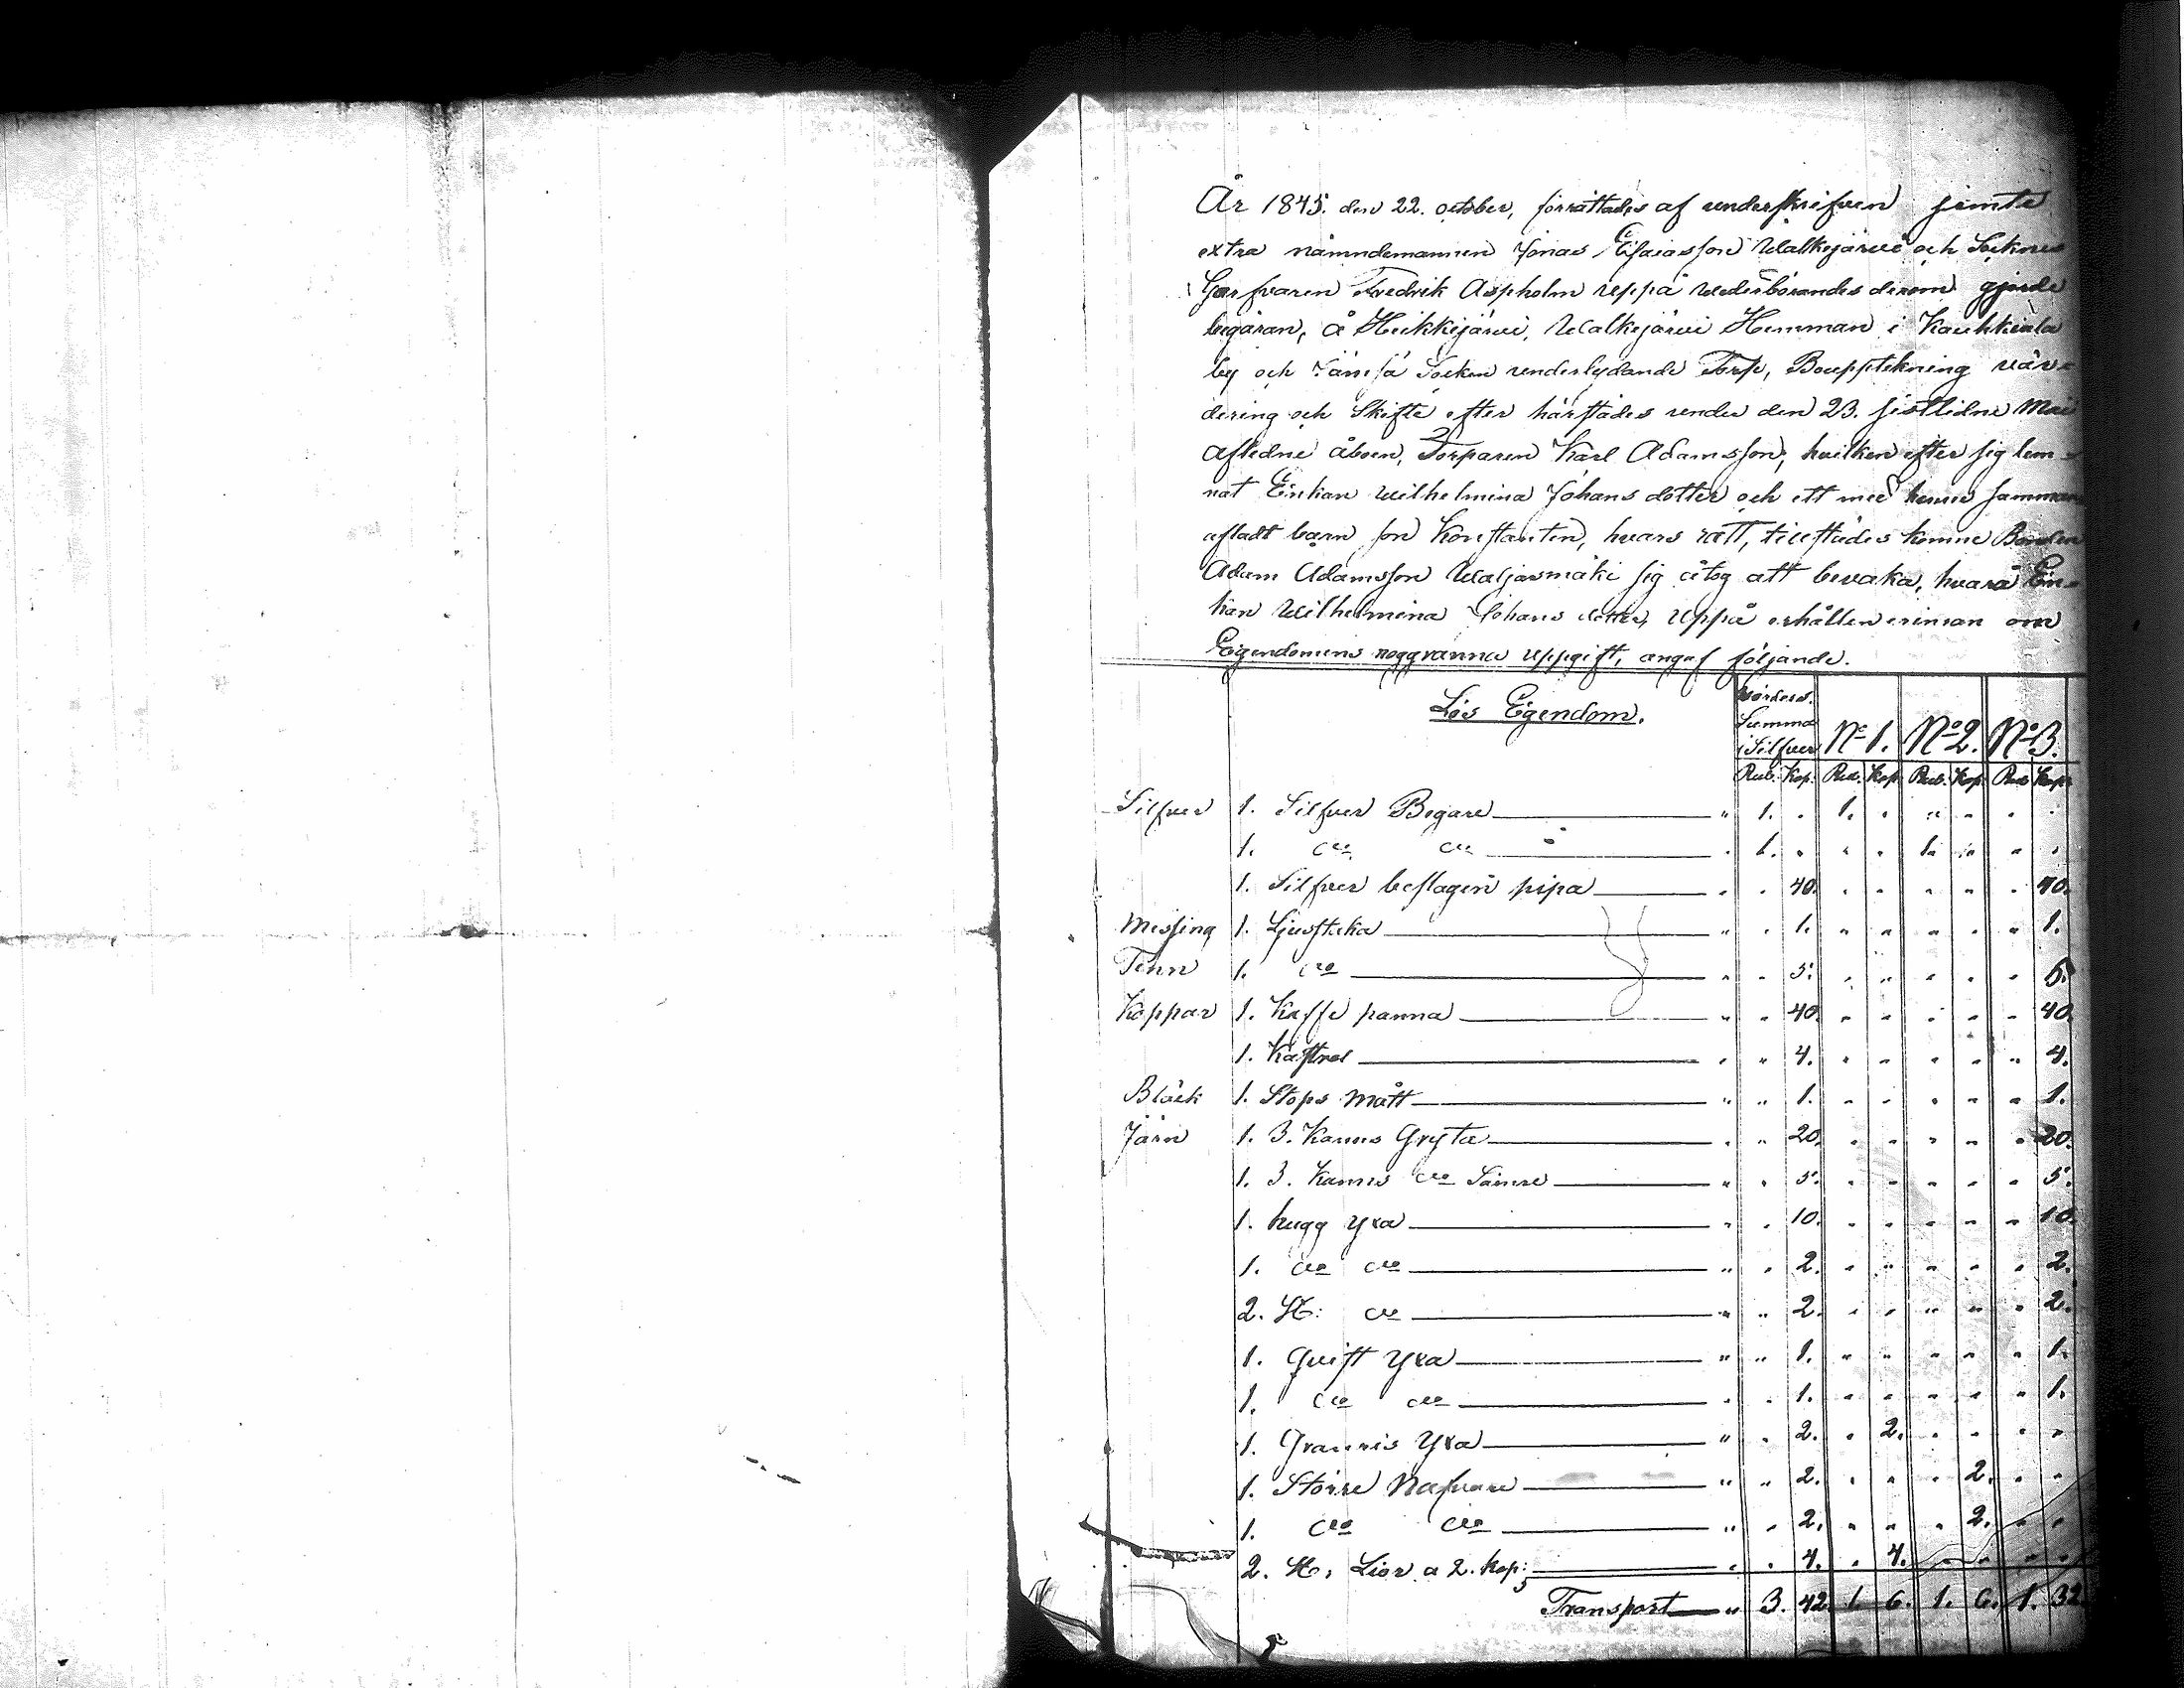 År 1845. den 22. october, förrättades af underskrifven jemte
extra nämndemannen Jonas Esaiasson Walkejärvi och Sockne
Garfvaren Fredrik Aspholm uppå wederbörandes derom gjorde
begäran, å Heikkijärvi, Walkejärvi Hemman i Kauhkiala
by och Jämsä Socken underlydande Torp, Bouppteckning vär-
dering och Skifte efter härstädes under den 23. sistlidne Maii
aflidne åboen, Torparen Karl Adamsson, hvilken efter sig lem-
nat Enkan Wilhelmina Johans dotter och ett med henne samman
afladt barn, son Konstantin, hvars rätt, tillstädes komne Bonden
Adam Adamsson Waljasmäki sig åtog att bevaka, hvarå En-
kan Wilhelmina Johans dotter, uppå erhållen erinran om
Egendomens noggranna uppgift, angaf följande.
Lös Egendom. Värders. Summa i Silfver No 1. No 2. No 3.
Rub. Kop. Rub. Kop. Rub. Kop. Rub. Kop.
Silfver 1. Silfver Begare " 1. . 1. . " " . .
1. do do . 1. . . . 1. " " .
1. Silfver beslagen pipa " . 40. . . . . . 40.
Messing 1. Ljusstaka " . 1. " " " . " 1.
Tenn 1. do " " 5. . " . . " 5.
Koppar 1. Kaffe panna " " 40. " " . " " 40.
1. Kastrol . " 4. . " " " " 4.
Bläck 1. Stops mått " " 1. " . . " " 1.
Järn 1. 3. Kanns Gryta . " 20. . " " " . 20.
1. 3. Kanns do Sämre " . 5. . " " " " 5.
1. hugg yxa " . 10. . " " " " 10.
1. do do " . 2. " " " " " 2.
2. St: do " " 2. . . " " . 2.
1. Qvist yxa " " 1. " " " " " 1.
1. do do . . 1. " " " " " 1.
1. yxa " . 2. . 2. . . . .
1. Större Nafvare " " 2. . . . 2. . .
1. do do " . 2. " " . 2. " .
2. St. Liar a 2. kop: . . 4. . 4. . . . .
Transport " 3. 42. 1. 6. 1. 6. 1. 32.